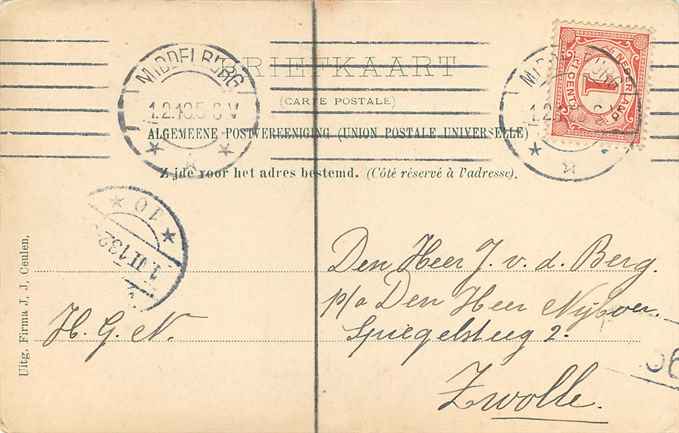 BRIEFKAART
(CARTE POSTALE)
ALGEMEENE POSTVEREENIGING (UNION POSTALE UNIVERSELLE)
Zijde voor het adres bestemd. (Côté réservé à l'adresse).
MIDDELBURG
1.2.13.5-6 V
MIDDELBURG
NEDERLAND
1
CENT
10
Uitg. Firma J. J. Ceulen.
H. G. N.
Den Heer J. v. d. Berg.
p/a Den Heer
Spiegelsteeg 2.
Zwolle.